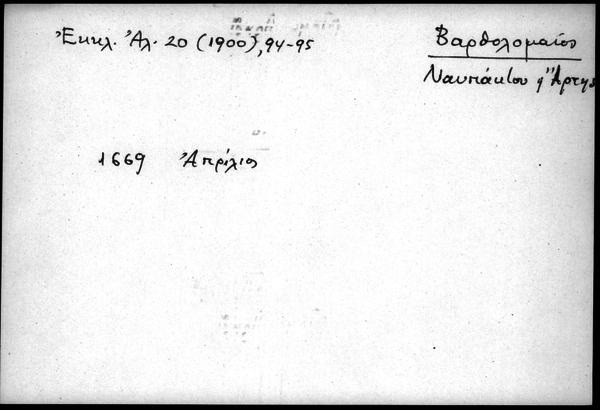 Ἐκκλ. Ἀλ. 20 (1900), 94-95
Βαρθολομαῖος
Ναυπάκτου ἢ Ἄρτης
1669 Ἀπρίλιος